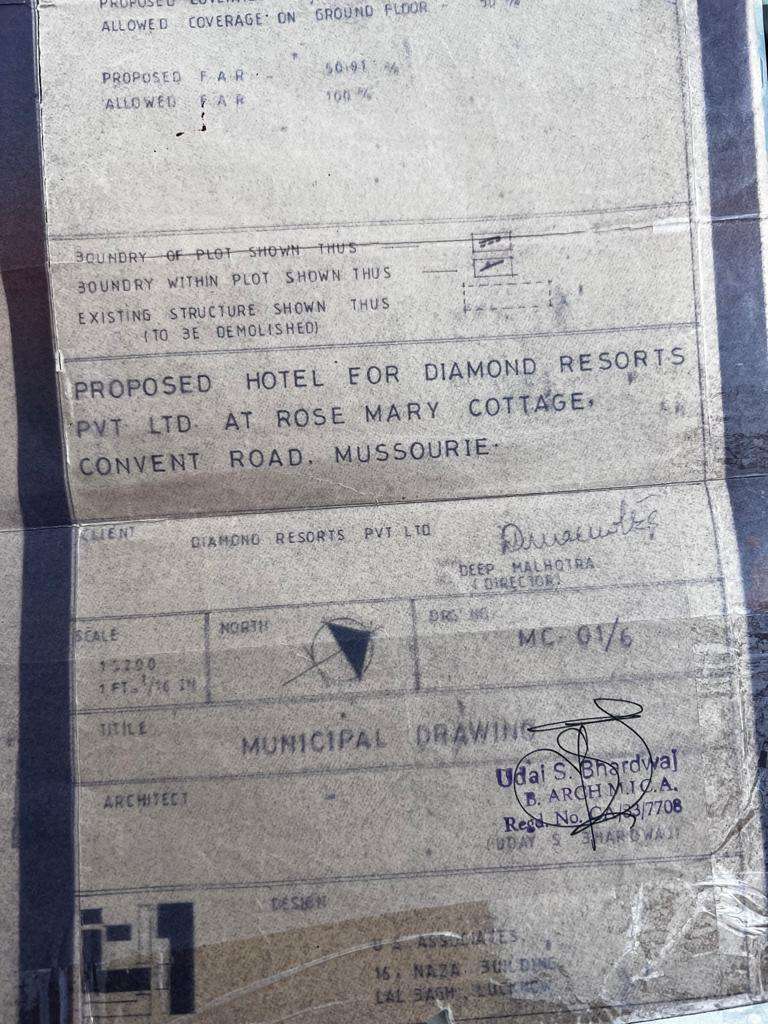 PROPOSED
ALLOWED COVERAGE ON GROUND FLOOR - 50 %
PROPOSED F A R - 50.91 %
ALLOWED F A R 100 %
BOUNDRY OF PLOT SHOWN THUS
BOUNDRY WITHIN PLOT SHOWN THUS
EXISTING STRUCTURE SHOWN THUS
(TO BE DEMOLISHED)
PROPOSED HOTEL FOR DIAMOND RESORTS
PVT LTD. AT ROSE MARY COTTAGE,
CONVENT ROAD, MUSSOURIE.
CLIENT DIAMOND RESORTS PVT LTD
DEEP MALHOTRA
(DIRECTOR)
SCALE
1:200
1 FT=1/16 IN
NORTH
DRG NO
MC-01/6
TITILE
MUNICIPAL DRAWING
ARCHITECT
Udai S. Bhardwaj
B. ARCH M.I.C.A.
Regd. No. CA/83/7708
(UDAY S BHARDWAJ)
DESIGN
ASSOCIATES,
16, NAZA BUILDING
LAL BAGH, LUCKNOW